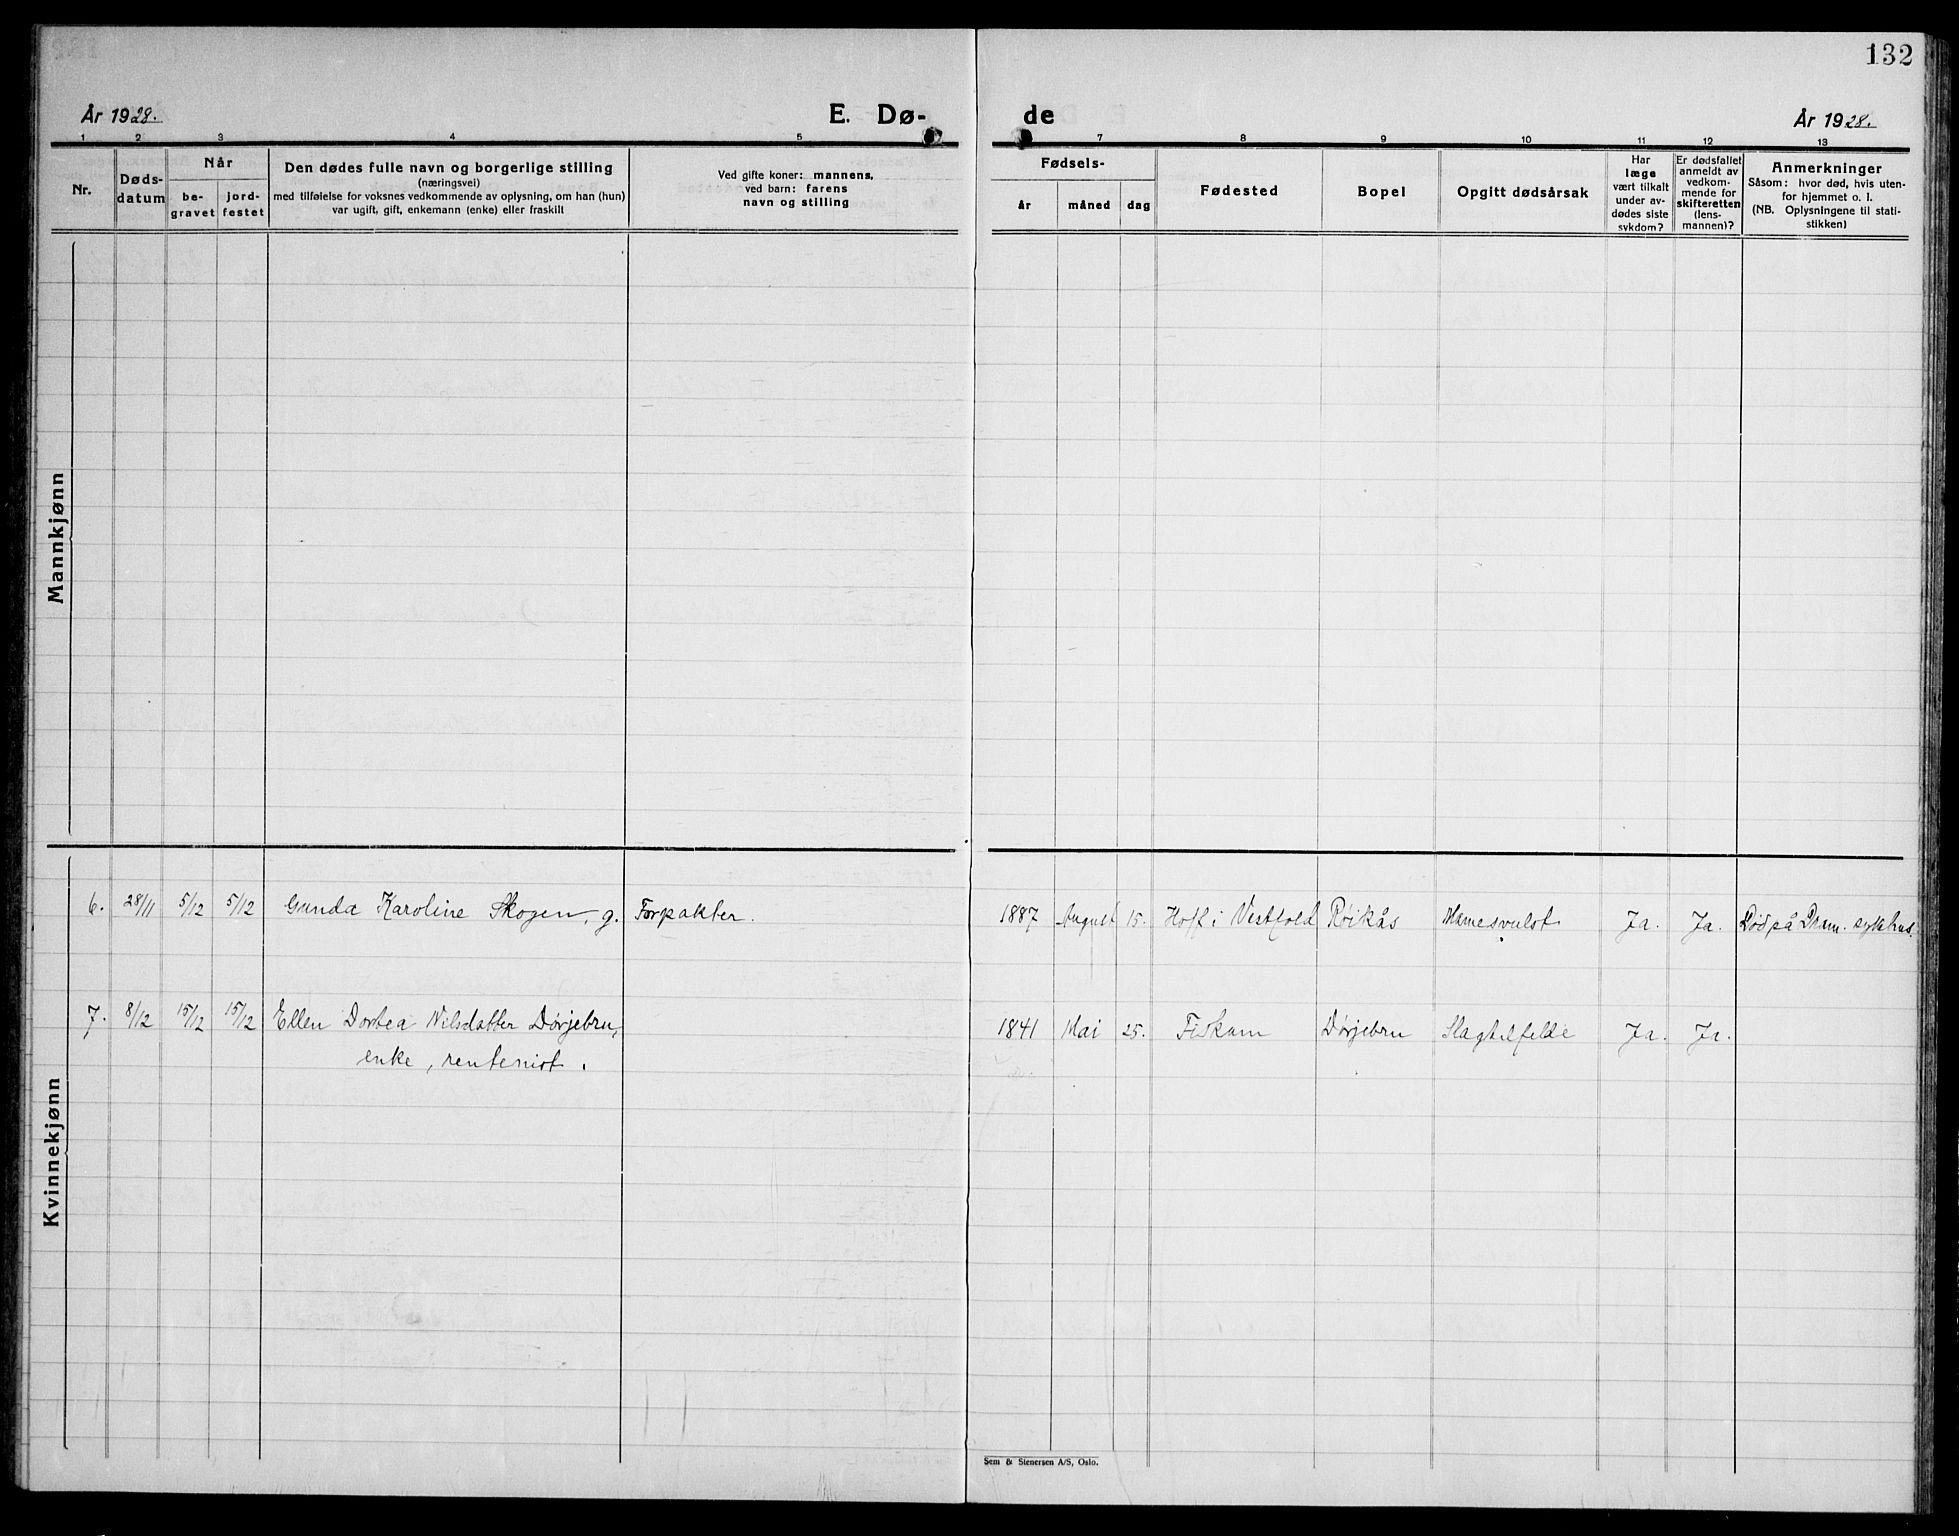 132
År 1928.
E. Dø-
de
År 1928.
1 2 3 4 5 7 8 9 10 11 12 13
Nr.
Døds-
datum
Når
be-
gravet
jord-
festet
Den dødes fulle navn og borgerlige stilling
(næringsvei)
med tilføielse for voksnes vedkommende av oplysning, om han (hun)
var ugift, gift, enkemann (enke) eller fraskilt
Ved gifte koner: mannens,
ved barn: farens
navn og stilling
Fødsels-
år måned dag
Fødested
Bopel
Opgitt dødsårsak
Har
læge
vært tilkalt
under av-
dødes siste
sykdom?
Er dødsfallet
anmeldt av
vedkom-
mende for
skifteretten
(lens-
mannen)?
Anmerkninger
Såsom: hvor død, hvis uten-
for hjemmet o. l.
(NB. Oplysningene til stati-
stikken)
Mannkjønn
Kvinnekjønn
6. 28/11 5/12 5/12 Gunda Karoline Skogen, g. Forpakter. 1887 August 15. Hoff i Vestfold Røikås Ja. Ja. Død på Dram. sykhus.
7. 8/12 15/12 15/12 Ellen Dortea Nilsdatter Dørjebru, 1841 Mai 25. Fiskum Dørjebru Slagtilfelde Ja. Ja.
enke, rentenist.
Sem & Stenersen A/S, Oslo.